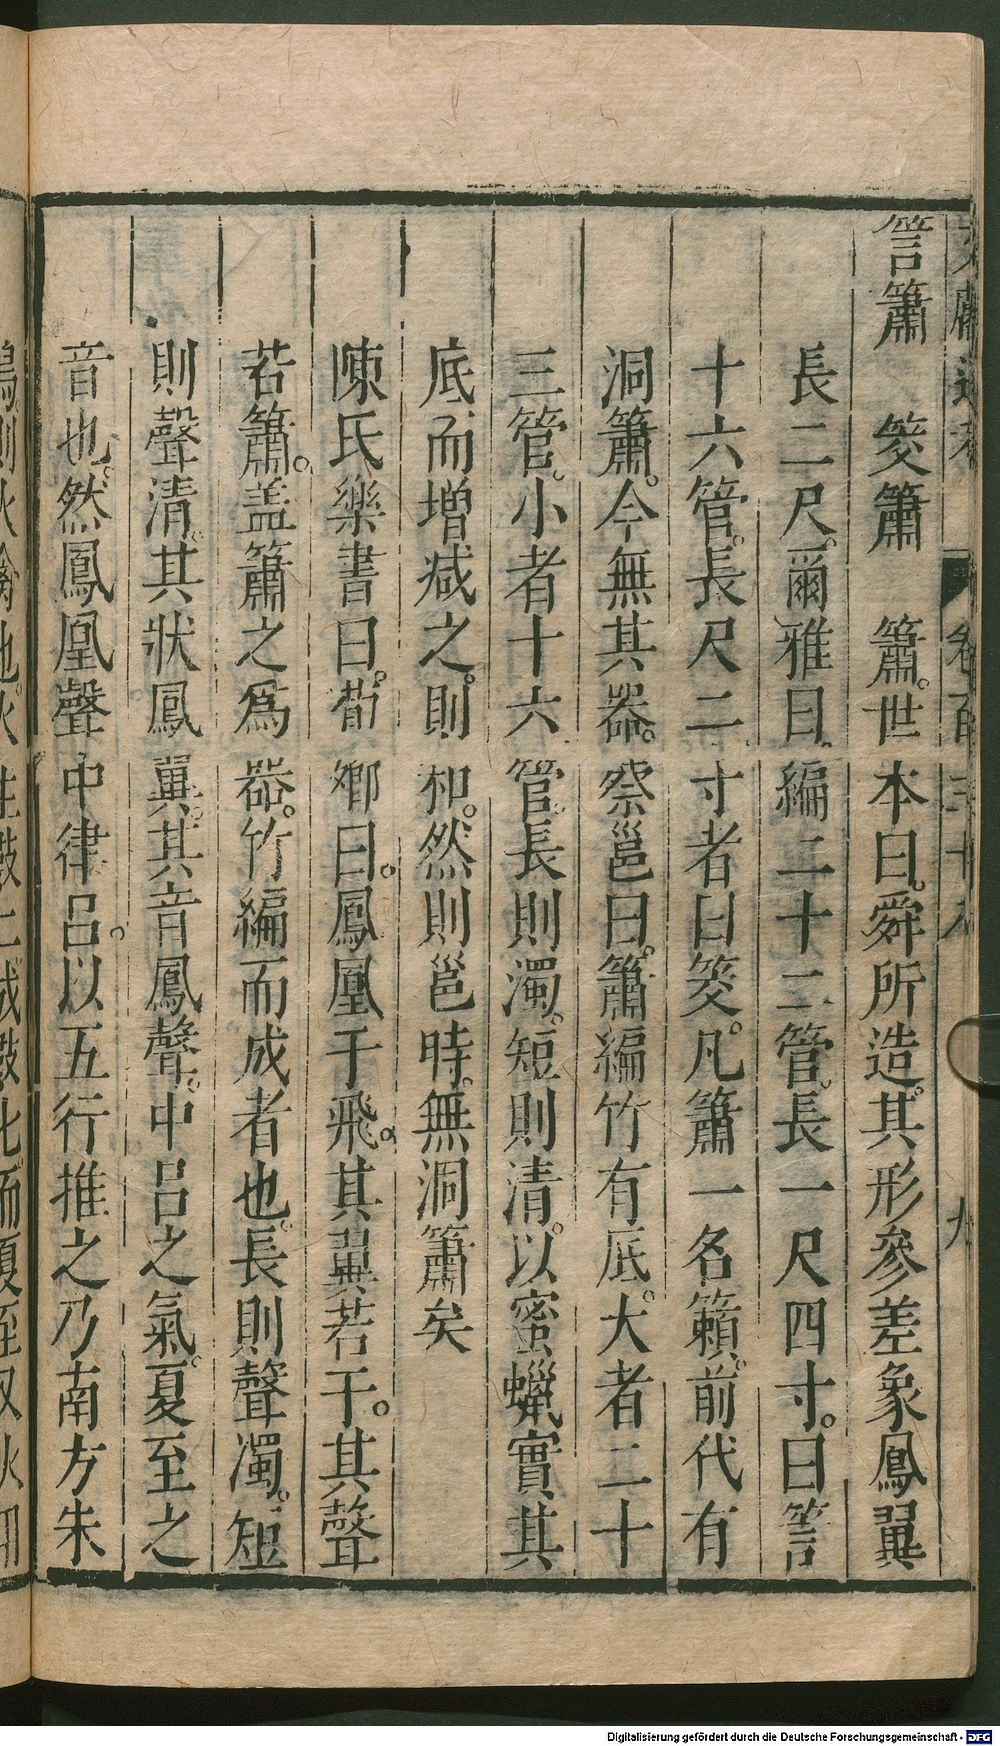 文獻通考 卷一百三十八 九
䇾簫 筊簫 簫。世本曰。舜所造。其形參差象鳳翼
長二尺。爾雅曰。編二十二管。長一尺四寸。曰䇾
十六管。長尺二寸者曰筊。凡簫一名籟。前代有
洞簫。今無其器。蔡邕曰。簫編竹有底。大者二十
三管。小者十六管長則濁。短則清。以蜜蠟實其
底而增減之。則和。然則邕時。無洞簫矣
陳氏樂書曰。荀卿曰。鳳凰于飛。其翼若干。其聲
若簫。盖簫之爲器。竹編而成者也。長則聲濁。短
則聲清。其狀鳳翼。其音鳳聲。中呂之氣。夏至之
音也。然鳳凰聲中律呂。以五行推之乃南方朱
Digitalisierung gefördert durch die Deutsche Forschungsgemeinschaft - DFG